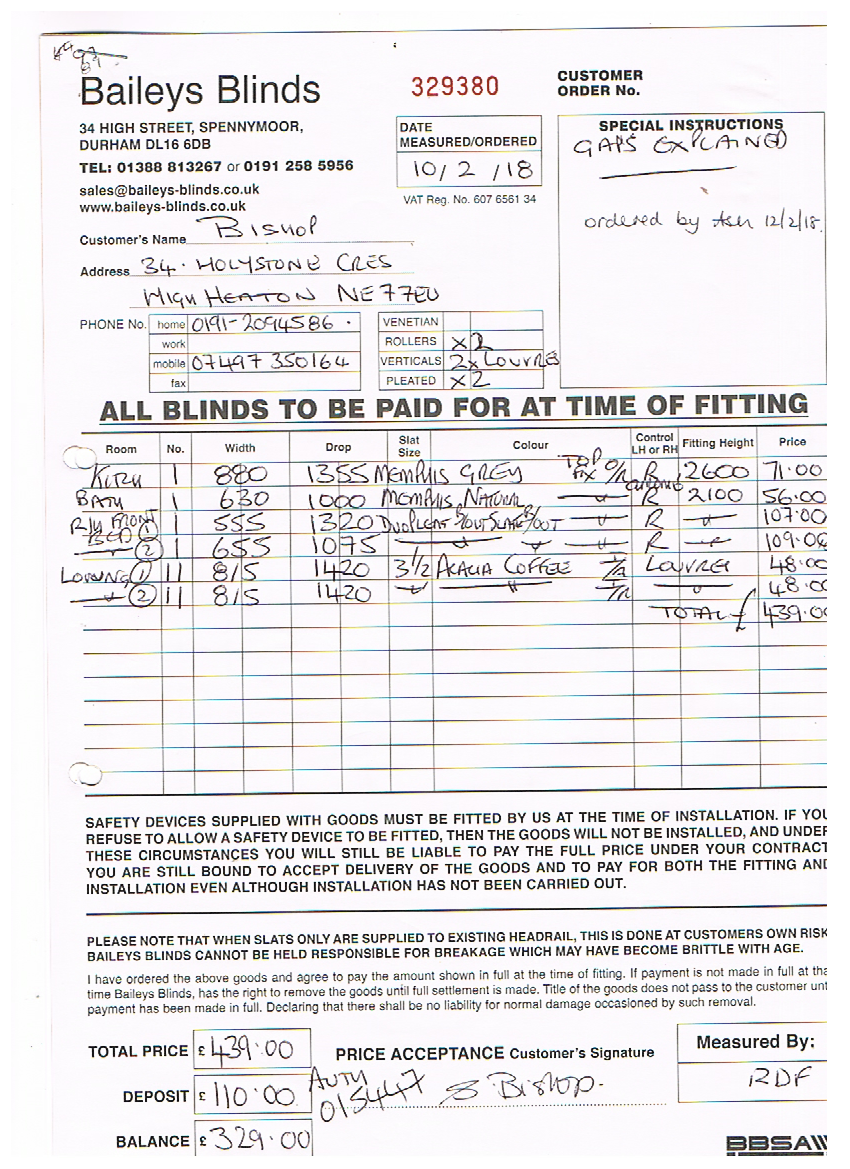 Baileys Blinds
34 HIGH STREET, SPENNYMOOR,
DURHAM DL16 6DB
TEL: 01388 813267 or 0191 258 5956
sales@baileys-blinds.co.uk
www.baileys-blinds.co.uk
329380
DATE
MEASURED/ORDERED
10/2/18
VAT Reg. No. 607 6561 34
CUSTOMER
ORDER No.
SPECIAL INSTRUCTIONS
GAPS EXPLAINED
ordered by Ash 12/2/18.
Customer's Name BISHOP
Address 34. HOLYSTONE CRES
HIGH HEATON NE77EU
PHONE No. home 0191-2094586.
work
mobile 07497 350164
fax
VENETIAN
ROLLERS x2
VERTICALS 2x LOUVRES
PLEATED x2
ALL BLINDS TO BE PAID FOR AT TIME OF FITTING
Room No. Width Drop Slat Size Colour Control LH or RH Fitting Height Price
1 880 1355 MEMPHIS GREY TOP FIX O/R R 2600 71.00
BATH 1 630 1000 MEMPHIS NATURAL R 2100 56.00
FRONT BED ① 1 555 1320 R 107.00
② 1 655 1075 R 109.00
① 11 815 1420 3 1/2 ACACIA COFFEE LOUVRES 48.00
② 11 815 1420 48.00
TOTAL £ 439.00
SAFETY DEVICES SUPPLIED WITH GOODS MUST BE FITTED BY US AT THE TIME OF INSTALLATION. IF YOU
REFUSE TO ALLOW A SAFETY DEVICE TO BE FITTED, THEN THE GOODS WILL NOT BE INSTALLED, AND UNDER
THESE CIRCUMSTANCES YOU WILL STILL BE LIABLE TO PAY THE FULL PRICE UNDER YOUR CONTRACT
YOU ARE STILL BOUND TO ACCEPT DELIVERY OF THE GOODS AND TO PAY FOR BOTH THE FITTING AND
INSTALLATION EVEN ALTHOUGH INSTALLATION HAS NOT BEEN CARRIED OUT.
PLEASE NOTE THAT WHEN SLATS ONLY ARE SUPPLIED TO EXISTING HEADRAIL, THIS IS DONE AT CUSTOMERS OWN RISK
BAILEYS BLINDS CANNOT BE HELD RESPONSIBLE FOR BREAKAGE WHICH MAY HAVE BECOME BRITTLE WITH AGE.
I have ordered the above goods and agree to pay the amount shown in full at the time of fitting. If payment is not made in full at tha
time Baileys Blinds, has the right to remove the goods until full settlement is made. Title of the goods does not pass to the customer unt
payment has been made in full. Declaring that there shall be no liability for normal damage occasioned by such removal.
TOTAL PRICE £ 439.00
PRICE ACCEPTANCE Customer's Signature
Measured By:
RDF
DEPOSIT £ 110.00 AUTH 015447 S Bishop.
BALANCE £ 329.00
BBSA